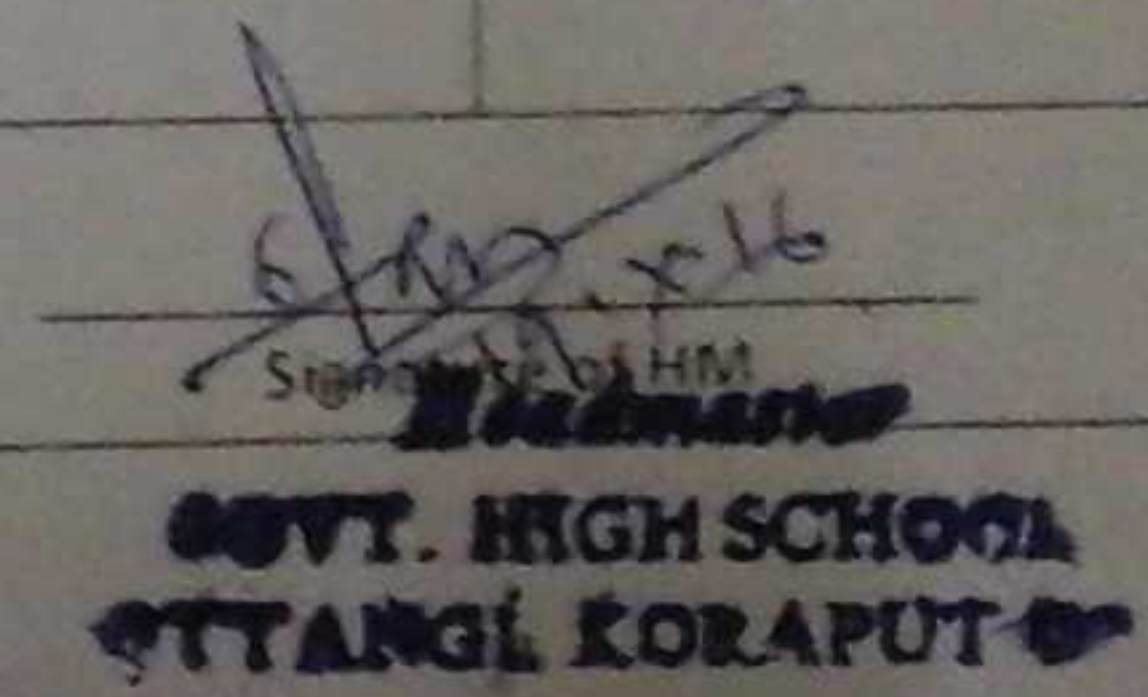 Signature of HM
Headmaster
GOVT. HIGH SCHOOL
POTTANGI, KORAPUT